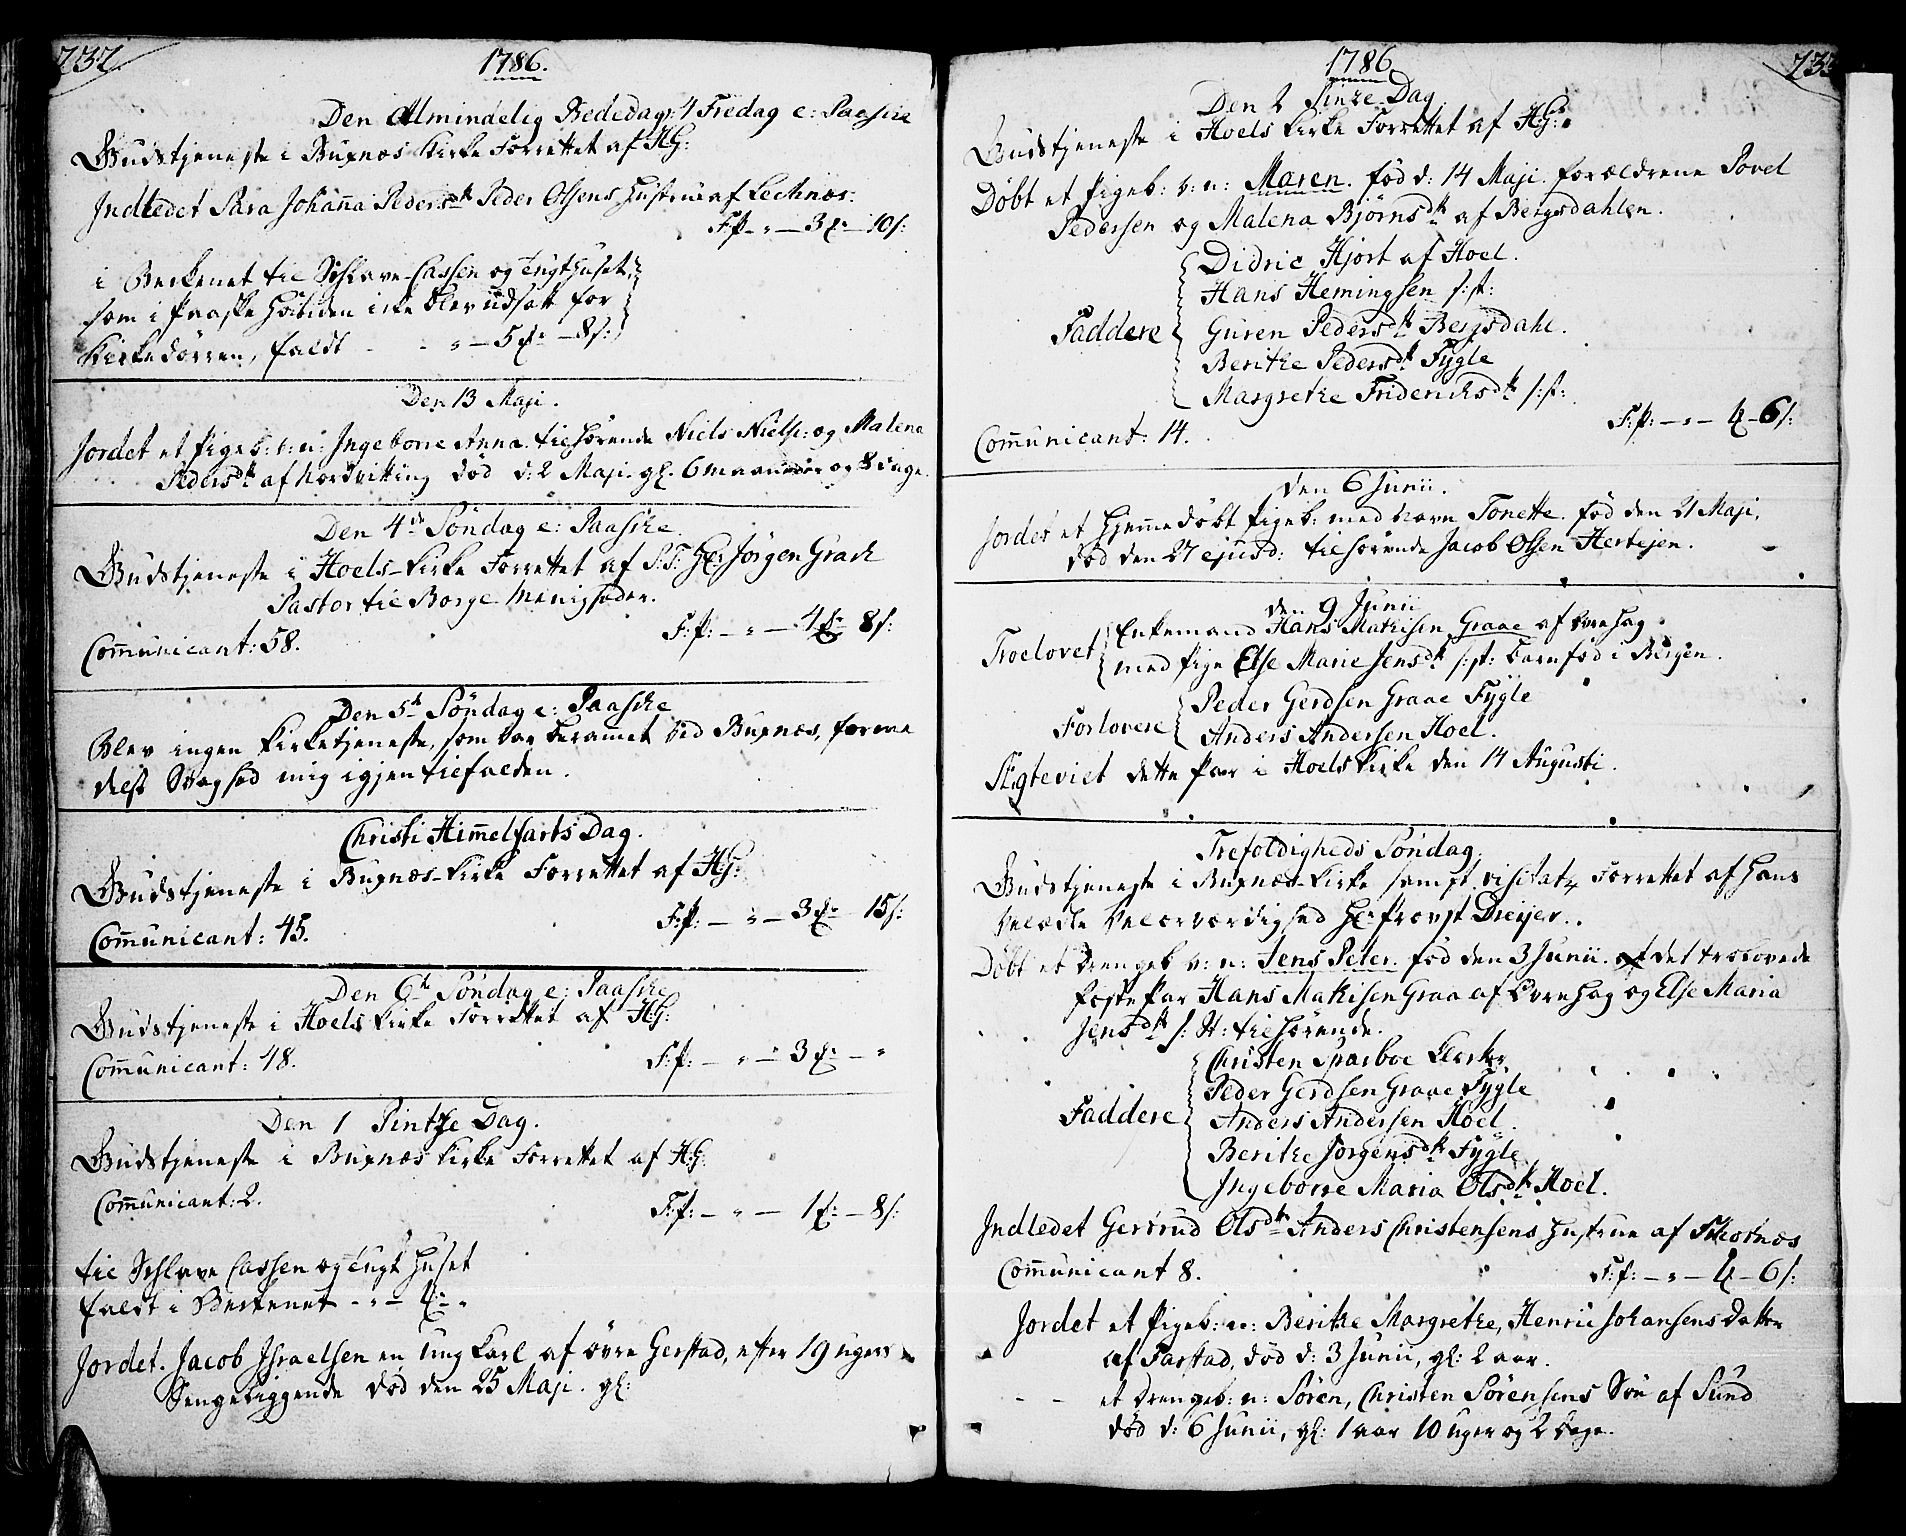 232.
1786.
Den Almindelig Bededag: 4 Fredag e: Paaske
Gudstjeneste i Buxnæs Kirke Forrettet af HG:
Indledet Sara Johanna Pedersdtr Peder Olsens Hustrue af Leeknæs.
F:P. – " – 3 – 10 s:
i Bekkenet til Schlave-Cassen og Tugthuset,
som i Paaske Høitiden ikke blev udsatt for
Kirkedørren, faldt – " – 5 – 8 s:
Den 13 Maji.
Jordet et Pigeb: v: n: Ingeborre Anna tilhørende Niels Niels: og Malena
Pedersdtr af Nordvikling død d: 2 Maji. gl. 6 maaneder og 8 dage.
Den 4de Søndag e: Paaske
Gudstjeneste i Hoels-Kirke Forrettet af S:T: Hr: Jørgen Grach
Pastor til Borge Menigheder.
Communicant: 58.
F:P: – " – 4 – 8 s:
Den 5te Søndag e: Paaske
Blev ingen Kirketjeneste, som var berammet ved Buxnæs, forme
delst Svaghed mig igjen tilfalden.
Christi Himmelfarts Dag.
Gudstjeneste i Buxnæs-Kirke Forrettet af HG:
Communicant: 45.
F:P: – " – 3 – 15 s:
Den 6te Søndag e: Paaske
Gudstjeneste i Hoels Kirke Forrettet af HG:
Communicant: 48.
F:P: – " – 3 – "
Den 1 Pintze Dag.
Gudstjeneste i Buxnæs Kirke Forrettet af HG:
Communicant: 2.
F:P: – " – 1 – 8 s:
til Schlave Cassen og Tugt Huset
faldt i Bekkenet – " – 4 – "
Jordet. Jacob Israelsen en ung Karl af øvre Gerstad, efter 19 ugers
Sengeliggende død den 25 Maji. gl:
233
1786
Den 2 Pinze Dag
Gudstjeneste i Hoels Kirke Forrettet af HG:
Døbt et Pigeb: v: n: Maren. fød d: 14 Maji. forældrene Povel
Pedersen og Malena Bjørnsdtr af Bergsdahlen.
Didric Hjort af Hoel.
Hans Hemingsen s: st:
Faddere Guren Pedersdtr Bergsdahl.
Beritke Pedersdtr Fygle
Margretke Fridericksdtr s: st:
Communicant: 14.
F:P: – " – 4 – 6 s:
den 6 Junii.
Jordet et Hjemmedøbt Pigeb: med Navn Tonette. fød den 21 Maji,
død den 27 ejusd: tilhørende Jacob Olsen Hertejen.
den 9 Junii
Troelovet Enkemand Hans Matkisen Graae af Ovre Hag
med Pige Else Marie Jensdtr s: st: barnfød i Bergen.
Peder Gerdsen Graae Fygle
Forlovere Anders Andersen Hoel.
Ægteviet dette Par i Hoels Kirke den 14 Augusti.
Trefoldigheds Søndag,
Gudstjeneste i Buxnæs-Kirke sampt visitatz Forrettet af Hans
Velædle Velærværdighed Hr: Provst Dreyer.
Døbt et Drengeb. v: n: Jens Peter. fød den 3 Junii. af det trolovede
Festepar Hans Matkisen Graa af Ovre Hag og Else Maria
Jensdtr s: St: tilhørende.
Christen Sparboe Klerker
Peder Gerdsen Graae Fygle
Faddere Anders Andersen Hoel.
Beritke Jorgensdtr Fygle
Ingeborre Maria Olsdtr Hoel.
Indledet Gertrud Olsdtr Anders Christensens Hustrue af Skotnæs
Communicant 8.
F:P: – " – 4 – 6 s:
Jordet et Pigeb: n: Beritke Margretke, Henric Johansens Datter
af Farstad, død d: 3 Junii, gl: 2 aar.
– – et Drengeb: n: Sören, Christen Sörensens Søn af Sund
død d: 6 Junii, gl: 1 aar 10 uger og 2 Dage.